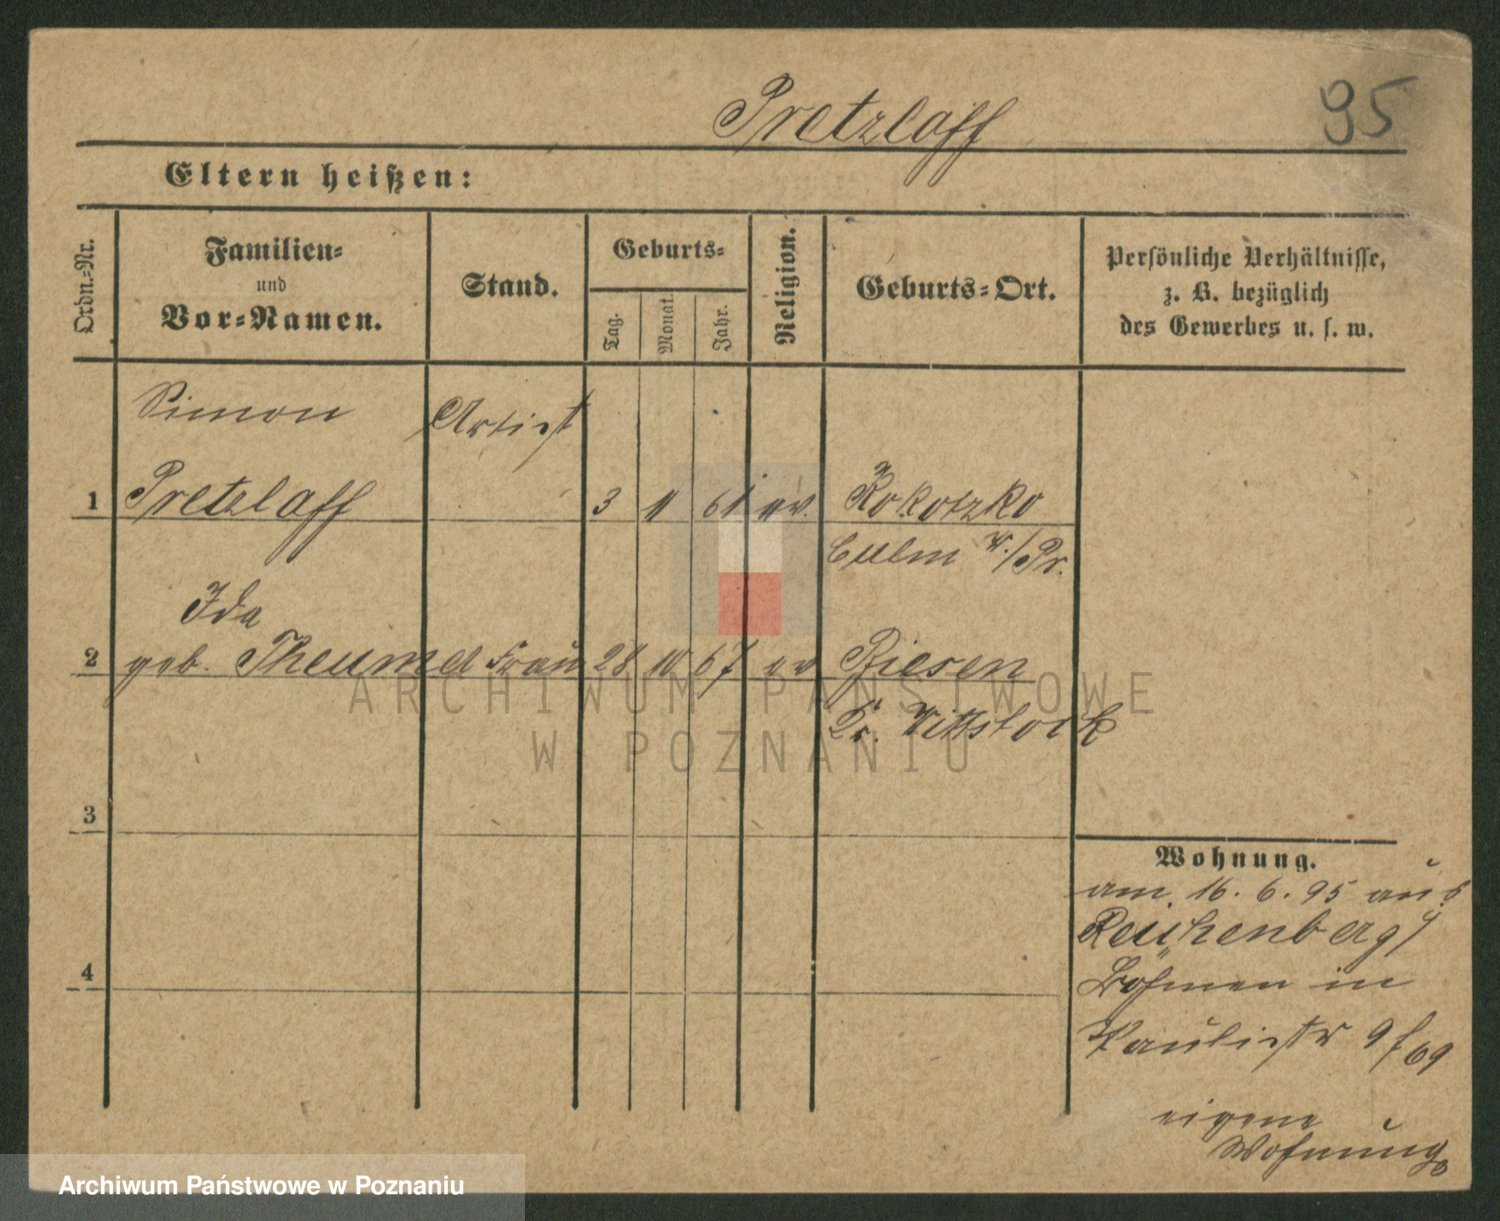 Pretzlaff
95
Eltern heißen:
Ordn.-Nr.
Familien-
und
Vor-Namen.
Stand.
Geburts-
Tag.
Monat.
Jahr.
Religion.
Geburts-Ort.
Persönliche Verhältnisse,
z. B. bezüglich
des Gewerbes u. s. w.
Simon Artist
1 Pretzlaff 3 11 61 ev. Kokotzko
Culm W./Pr.
Ida
2 geb. Frau 28 67 ev Biesen
Kr. Wittstock
3
4
Wohnung.
am 16. 6. 95 aus
Reichenberg/
Böhmen in
Paulistr 9/69
eigene
Wohnung
ARCHIWUM PAŃSTWOWE
W POZNANIU
Archiwum Państwowe w Poznaniu